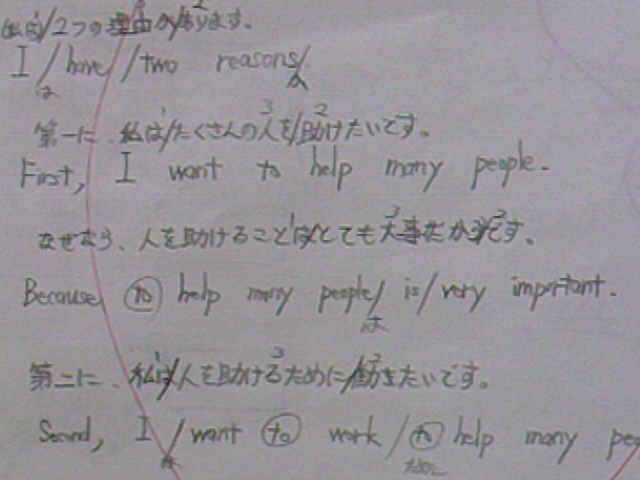 私は/2つの理由が/あります。
I / have / two reasons/.
は が
第一に、私は/たくさんの人を/助けたいです。
First, I want to help many people.
なぜなら、人を助けることは/とても大事だからです。
Because to help many people/ is/ very important.
は
第二に、私は/人を助けるために/働きたいです。
Second, I / want to work / to help many
は ために